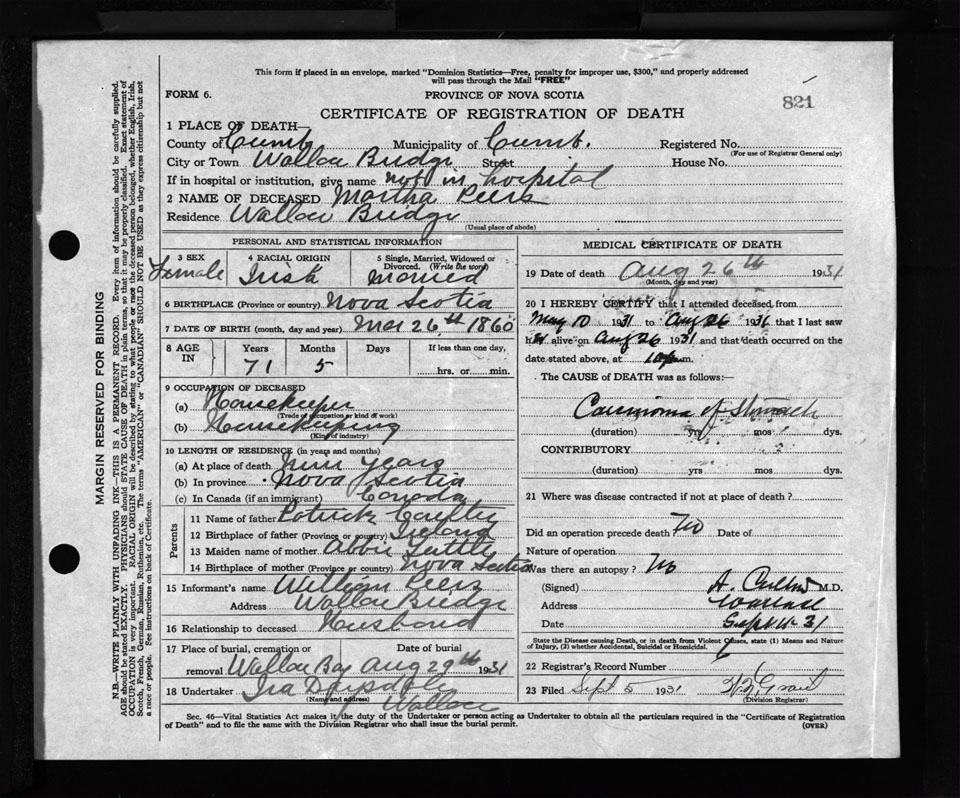 This form if placed in an envelope, marked "Dominion Statistics—Free, penalty for improper use, $300," and properly addressed
will pass through the Mail "FREE"
FORM 6.
PROVINCE OF NOVA SCOTIA
821
CERTIFICATE OF REGISTRATION OF DEATH
1 PLACE OF DEATH—
County of Cumb Municipality of Cumb. Registered No.
(For use of Registrar General only)
City or Town Wallace Bridge Street House No.
If in hospital or institution, give name not in hospital
2 NAME OF DECEASED Martha Peers
Residence Wallace Bridge
(Usual place of abode)
PERSONAL AND STATISTICAL INFORMATION
3 SEX 4 RACIAL ORIGIN 5 Single, Married, Widowed or
Divorced. (Write the word)
Female Irish Married
6 BIRTHPLACE (Province or country) Nova Scotia
7 DATE OF BIRTH (month, day and year) Mar 26th 1860
8 AGE IN Years Months Days If less than one day,
71 5 hrs. or min.
9 OCCUPATION OF DECEASED
(a) Housekeeper
(Trade of occupation or kind of work)
(b) Housekeeping
(Kind of industry)
10 LENGTH OF RESIDENCE (in years and months)
(a) At place of death years
(b) In province Nova Scotia
(c) In Canada (if an immigrant) Canada
Parents
11 Name of father Patrick
12 Birthplace of father (Province or country) Ireland
13 Maiden name of mother Abbie Tuttle
14 Birthplace of mother (Province or country) Nova Scotia
15 Informant's name William Peers
Address Wallace Bridge
16 Relationship to deceased Husband
17 Place of burial, cremation or Date of burial
removal Wallace Bay Aug 29th 1931
18 Undertaker Ira
(Name and address) Wallace
MEDICAL CERTIFICATE OF DEATH
19 Date of death Aug 26th 1931
(Month, day and year)
20 I HEREBY CERTIFY that I attended deceased, from
May 10 1931 to Aug 26 1931 that I last saw
her alive on Aug 26 1931 and that death occurred on the
date stated above, at m.
The CAUSE of DEATH was as follows:—
Carcinoma of Stomach
(duration) yrs mos dys.
CONTRIBUTORY
(duration) yrs mos dys.
21 Where was disease contracted if not at place of death?
Did an operation precede death No Date of
Nature of operation
Was there an autopsy? No
(Signed) M.D.
Address Wallace
Date Sept 4 31
State the Disease causing Death, or in death from Violent Causes, state (1) Means and Nature
of Injury, (2) whether Accidental, Suicidal or Homicidal.
22 Registrar's Record Number
23 Filed Sept 5 1931
(Division Registrar)
Sec. 46—Vital Statistics Act makes it the duty of the Undertaker or person acting as Undertaker to obtain all the particulars required in the "Certificate of Registration
of Death" and to file the same with the Division Registrar who shall issue the burial permit.
(OVER)
MARGIN RESERVED FOR BINDING
N.B.—WRITE PLAINLY WITH UNFADING INK—THIS IS A PERMANENT RECORD. Every item of information should be carefully supplied.
AGE should be stated EXACTLY. PHYSICIANS should STATE CAUSE OF DEATH in plain terms, so that it may be properly classified. Exact statement of
OCCUPATION is very important. RACIAL ORIGIN will be described by stating to what people or race the deceased person belonged, whether English, Irish,
Scotch, French, German, Russian, Ruthenian, etc. The terms "AMERICAN" or "CANADIAN" SHOULD NOT BE USED as they express citizenship but not
a race or people. See instructions on back of Certificate.